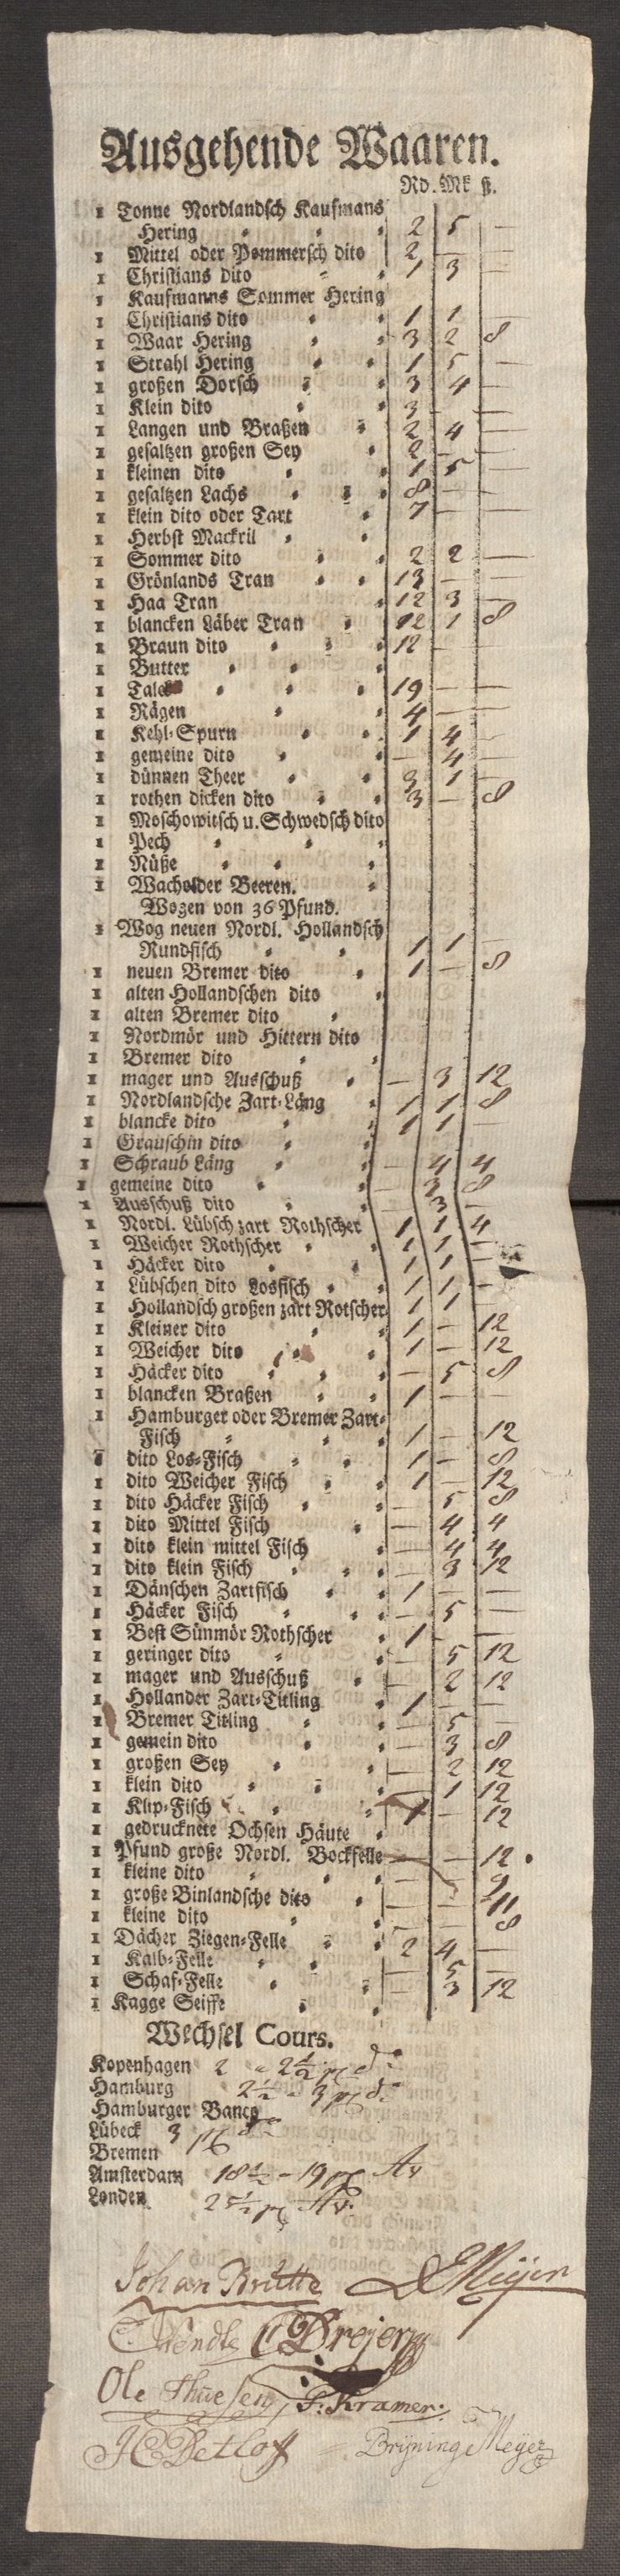 Ausgehende Waaren.
Rd. Mk ß.
1 Tonne Nordlandsch Kaufmans
Hering 2 5 —
1 Mittel oder Pommersch dito 2 — —
1 Christians dito 1 3 —
1 Kaufmanns Sommer Hering
1 Christians dito 1 1 —
1 Waar Hering 3 2 8
1 Strahl Hering 1 5 —
1 großen Dorsch 3 4 —
1 Klein dito 3 — —
1 Langen und Braßen 2 4 —
1 gesaltzen großen Sey 2 — —
1 kleinen dito 1 5 —
1 gesaltzen Lachs 8 — —
1 klein dito oder Tart 7 — —
1 Herbst Mackril
1 Sommer dito 2 2 —
1 Grönlands Tran 13 — —
1 Haa Tran 12 3 —
1 blancken Läber Tran 12 1 8
1 Braun dito 12 — —
1 Butter
1 19 — —
1 Rägen 4 — —
1 Kehl-Spurn 1 4 —
1 gemeine dito — 4 —
1 dünnen Theer 3 1 —
1 rothen dicken dito 3 — 8
1 Moschowitsch u. Schwedsch dito
1 Pech
1 Nüße
1 Wacholder Beeren.
Wogen von 36 Pfund.
1 Wog neuen Nordl. Hollandsch
Rundfisch 1 1 —
1 neuen Bremer dito 1 — 8
1 alten Hollandschen dito
1 alten Bremer dito
1 Nordmör und Hittern dito
1 Bremer dito
1 mager und Ausschuß — 3 12
1 Nordlandsche Zart-Läng 1 1 8
1 blancke dito 1 1 —
1 Grauschin dito
1 Schraub Läng — 4 4
1 gemeine dito — 3 8
1 Ausschuß dito — 3 —
1 Nordl. Lübsch zart Rothscher 1 1 4
1 Weicher Rothscher 1 1 —
1 Häcker dito 1 1 —
1 Lübschen dito Losfisch 1 1 —
1 Hollandsch großen zart Rotscher 1 1 —
1 Kleiner dito 1 — 12
1 Weicher dito 1 — 12
1 Häcker dito — 5 8
1 blancken Braßen 1 — —
1 Hamburger oder Bremer Zart-
Fisch 1 — 12
1 dito Los-Fisch 1 — 8
1 dito Weicher Fisch 1 — 12
1 dito Häcker Fisch — 5 8
1 dito Mittel Fisch — 4 4
1 dito klein mittel Fisch — 4 4
1 dito klein Fisch — 3 12
1 Dänschen Zartfisch 1 — —
1 Häcker Fisch — 5 —
1 Best Sünmör Rothscher 1 — —
1 geringer dito — 5 12
1 mager und Ausschuß — 2 12
1 Hollander Zart-Titling 1 — —
1 Bremer Titling — 5 —
1 gemein dito — 3 8
1 großen Sey — 2 12
1 klein dito — 1 12
1 Klip-Fisch 1 — 12
1 gedrucknete Ochsen Häute
1 Pfund große Nordl. Bockfelle — — 12
1 kleine dito — — 9
1 große Binlandsche dito — — 11
1 kleine dito — — 8
1 Dächer Ziegen-Felle 2 4 —
1 Kalb-Felle — 5 —
1 Schaf-Felle — 3 12
1 Kagge Seiffe
Wechsel Cours.
Kopenhagen 2 a 2½
Hamburg 2½ a 3
Hamburger Banco
Lübeck 3
Bremen
Amsterdam 18½ - 19
London 2
Johan
Meijer
Wendt
Dreijer
Ole Thuesen
Kramer
JC Detlof
Brÿninge Meÿer